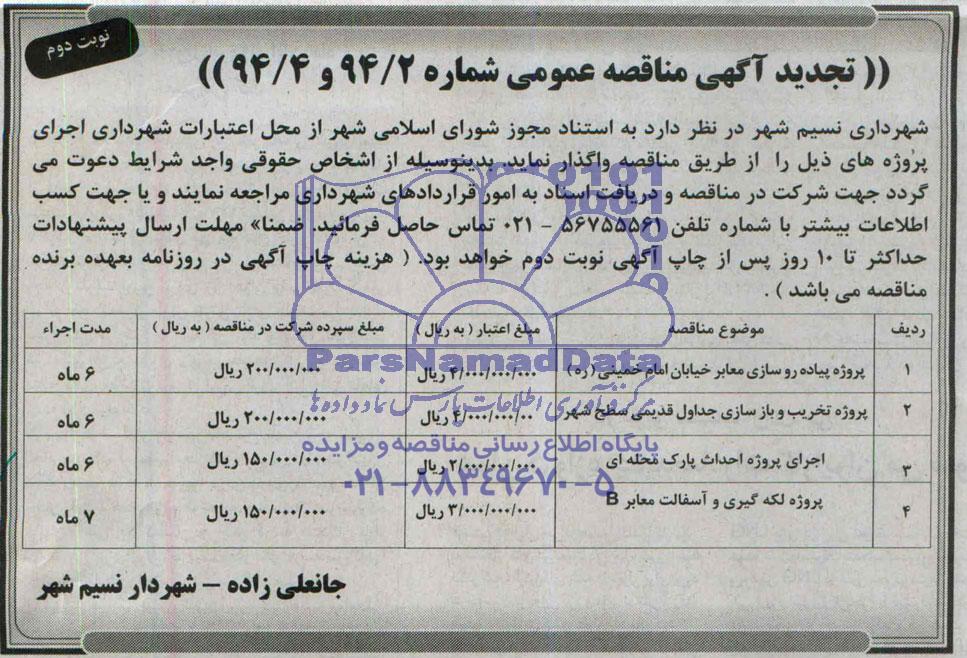 نوبت دوم
(( تجدید آگهی مناقصه عمومی شماره ۹۴/۲ و ۹۴/۴ ))
شهرداری نسیم شهر در نظر دارد به استناد مجوز شورای اسلامی شهر از محل اعتبارات شهرداری اجرای
پروژه های ذیل را از طریق مناقصه واگذار نماید. بدینوسیله از اشخاص حقوقی واجد شرایط دعوت می
گردد جهت شرکت در مناقصه و دریافت اسناد به امور قراردادهای شهرداری مراجعه نمایند و یا جهت کسب
اطلاعات بیشتر با شماره تلفن ۵۶۷۵۵۵۶۱ - ۰۲۱ تماس حاصل فرمائید. ضمنا» مهلت ارسال پیشنهادات
حداکثر تا ۱۰ روز پس از چاپ آگهی نوبت دوم خواهد بود. ( هزینه چاپ آگهی در روزنامه بعهده برنده
مناقصه می باشد ) .
ردیف موضوع مناقصه مبلغ اعتبار ( به ریال ) مبلغ سپرده شرکت در مناقصه ( به ریال ) مدت اجراء
۱ پروژه پیاده رو سازی معابر خیابان امام خمینی (ره) ۴/۰۰۰/۰۰۰/۰۰۰ ریال ۲۰۰/۰۰۰/۰۰۰ ریال ۶ ماه
۲ پروژه تخریب و باز سازی جداول قدیمی سطح شهر ۴/۰۰۰/۰۰۰/۰۰۰ ریال ۲۰۰/۰۰۰/۰۰۰ ریال ۶ ماه
۳ اجرای پروژه احداث پارک محله ای ۲/۰۰۰/۰۰۰/۰۰۰ ریال ۱۵۰/۰۰۰/۰۰۰ ریال ۶ ماه
۴ پروژه لکه گیری و آسفالت معابر B ۳/۰۰۰/۰۰۰/۰۰۰ ریال ۱۵۰/۰۰۰/۰۰۰ ریال ۷ ماه
جانعلی زاده - شهردار نسیم شهر
ParsNamadData
مرکز فرآوری اطلاعات پارس نماد داده ها
پایگاه اطلاع رسانی مناقصه و مزایده
۰۲۱-۸۸۳۴۹۶۷۰-۵